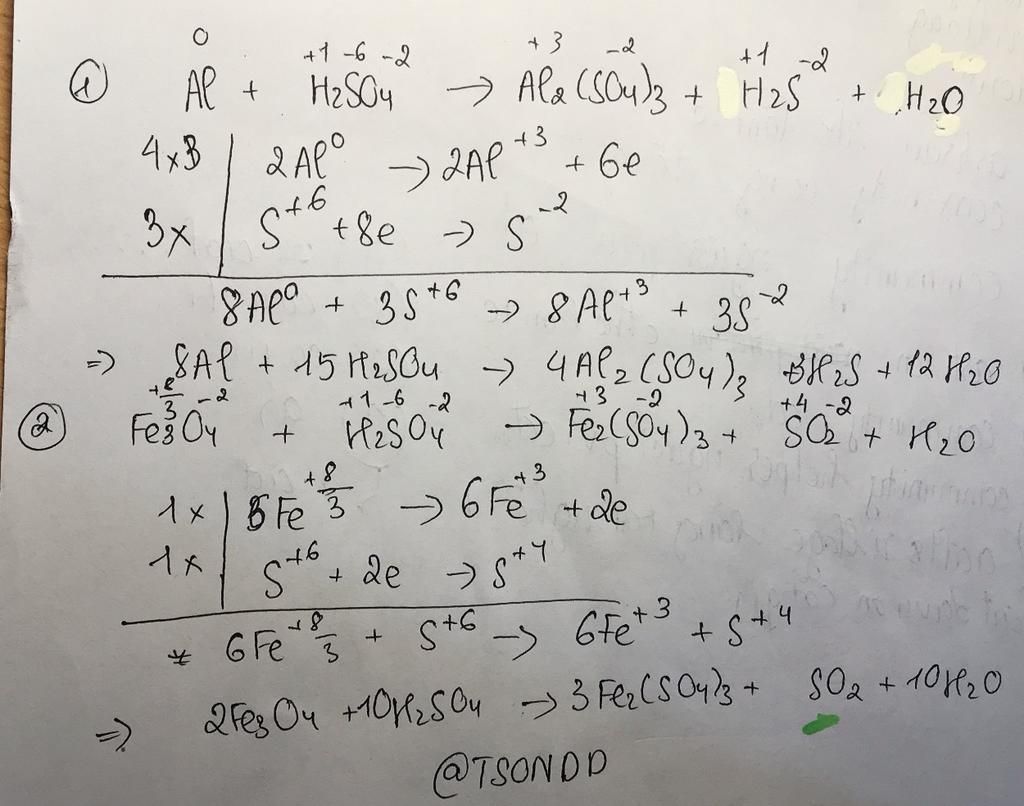 0 +1 -6 -2 +3 -2 +1 -2
① Al + H2SO4 → Al2(SO4)3 + H2S + H2O
4x3 | 2Al⁰ → 2Al⁺³ + 6e
3x | S⁺⁶ + 8e → S⁻²
8Al⁰ + 3S⁺⁶ → 8Al⁺³ + 3S⁻²
=> 8Al + 15H2SO4 → 4Al2(SO4)3 + 3H2S + 12H2O
+8/3 -2 +1 -6 -2 +3 -2 +4 -2
② Fe3O4 + H2SO4 → Fe2(SO4)3 + SO2 + H2O
1x | 6Fe^+8/3 → 6Fe⁺³ + 2e
1x | S⁺⁶ + 2e → S⁺⁴
* 6Fe^+8/3 + S⁺⁶ → 6Fe⁺³ + S⁺⁴
=> 2Fe3O4 + 10H2SO4 → 3Fe2(SO4)3 + SO2 + 10H2O
@TSONDD